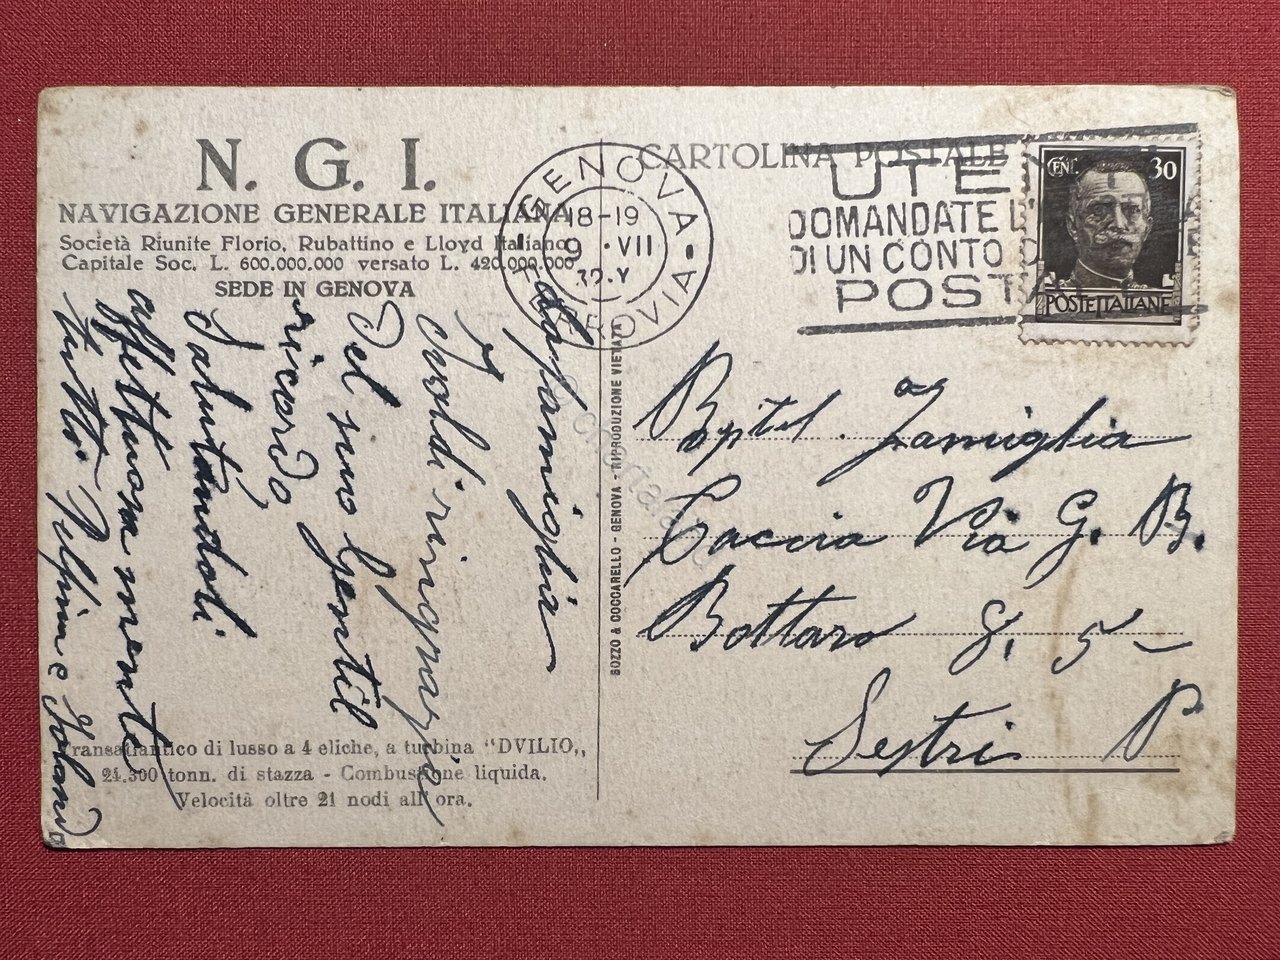 N. G. I.
NAVIGAZIONE GENERALE ITALIANA
Società Riunite Florio, Rubattino e Lloyd Italiano
Capitale Soc. L. 600.000.000 versato L. 420.000.000
SEDE IN GENOVA
CARTOLINA POSTALE
GENOVA
18-19
9 · VII
32.X
FERROVIA
UTEN
DOMANDATE L'
DI UN CONTO C
POSTA
CENT. 30
POSTE ITALIANE
La famiglia
Tusoldi ringrazia
del suo gentil
ricordo
Salutandoli
affettuosamente
tutti.
e Ioland
BOZZO & COCCARELLO - GENOVA - RIPRODUZIONE VIETATA
Famiglia
Caccia Via G. B.
Bottaro 8, 5 -
Sestri P
Transatlantico di lusso a 4 eliche, a turbina "DVILIO,,
24.300 tonn. di stazza - Combustione liquida.
Velocità oltre 21 nodi all'ora.